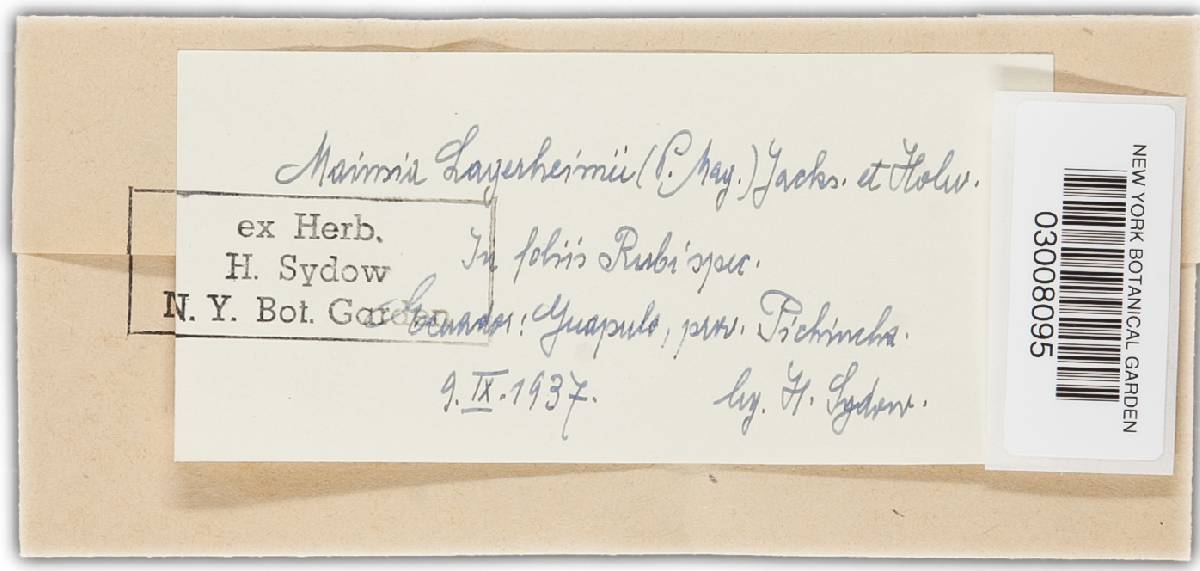 Mainsia Lagerheimii (P. Mag.) Jacks. et Holw.
In foliis Rubi spec.
Ecuador: Guapulo, prov. Pichincha.
9. IX. 1937. leg. H. Sydow.
ex Herb.
H. Sydow
N. Y. Bot. Garden
NEW YORK BOTANICAL GARDEN
03008095